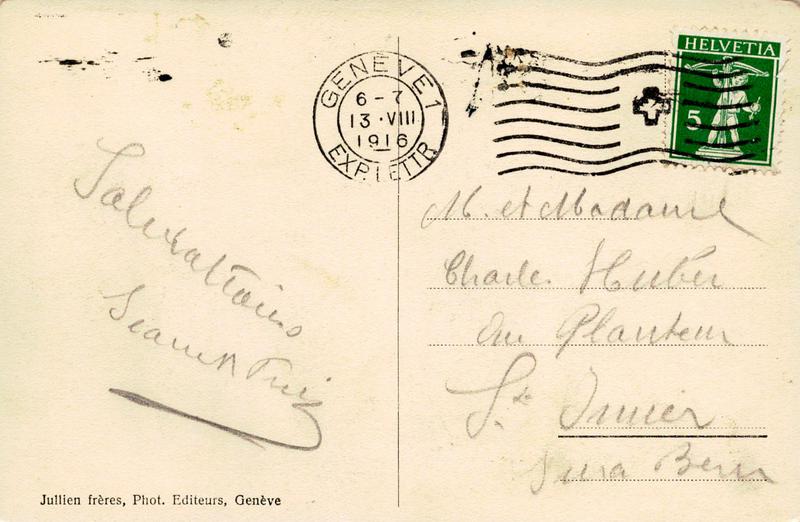 GENÈVE 1
6-7
13·VIII
1916
EXP. LETTR.
HELVETIA
5
Salutations
M. et Madame
Charles Huber
au Planteur
St. Imier
Jura Bern
Jullien frères, Phot. Editeurs, Genève